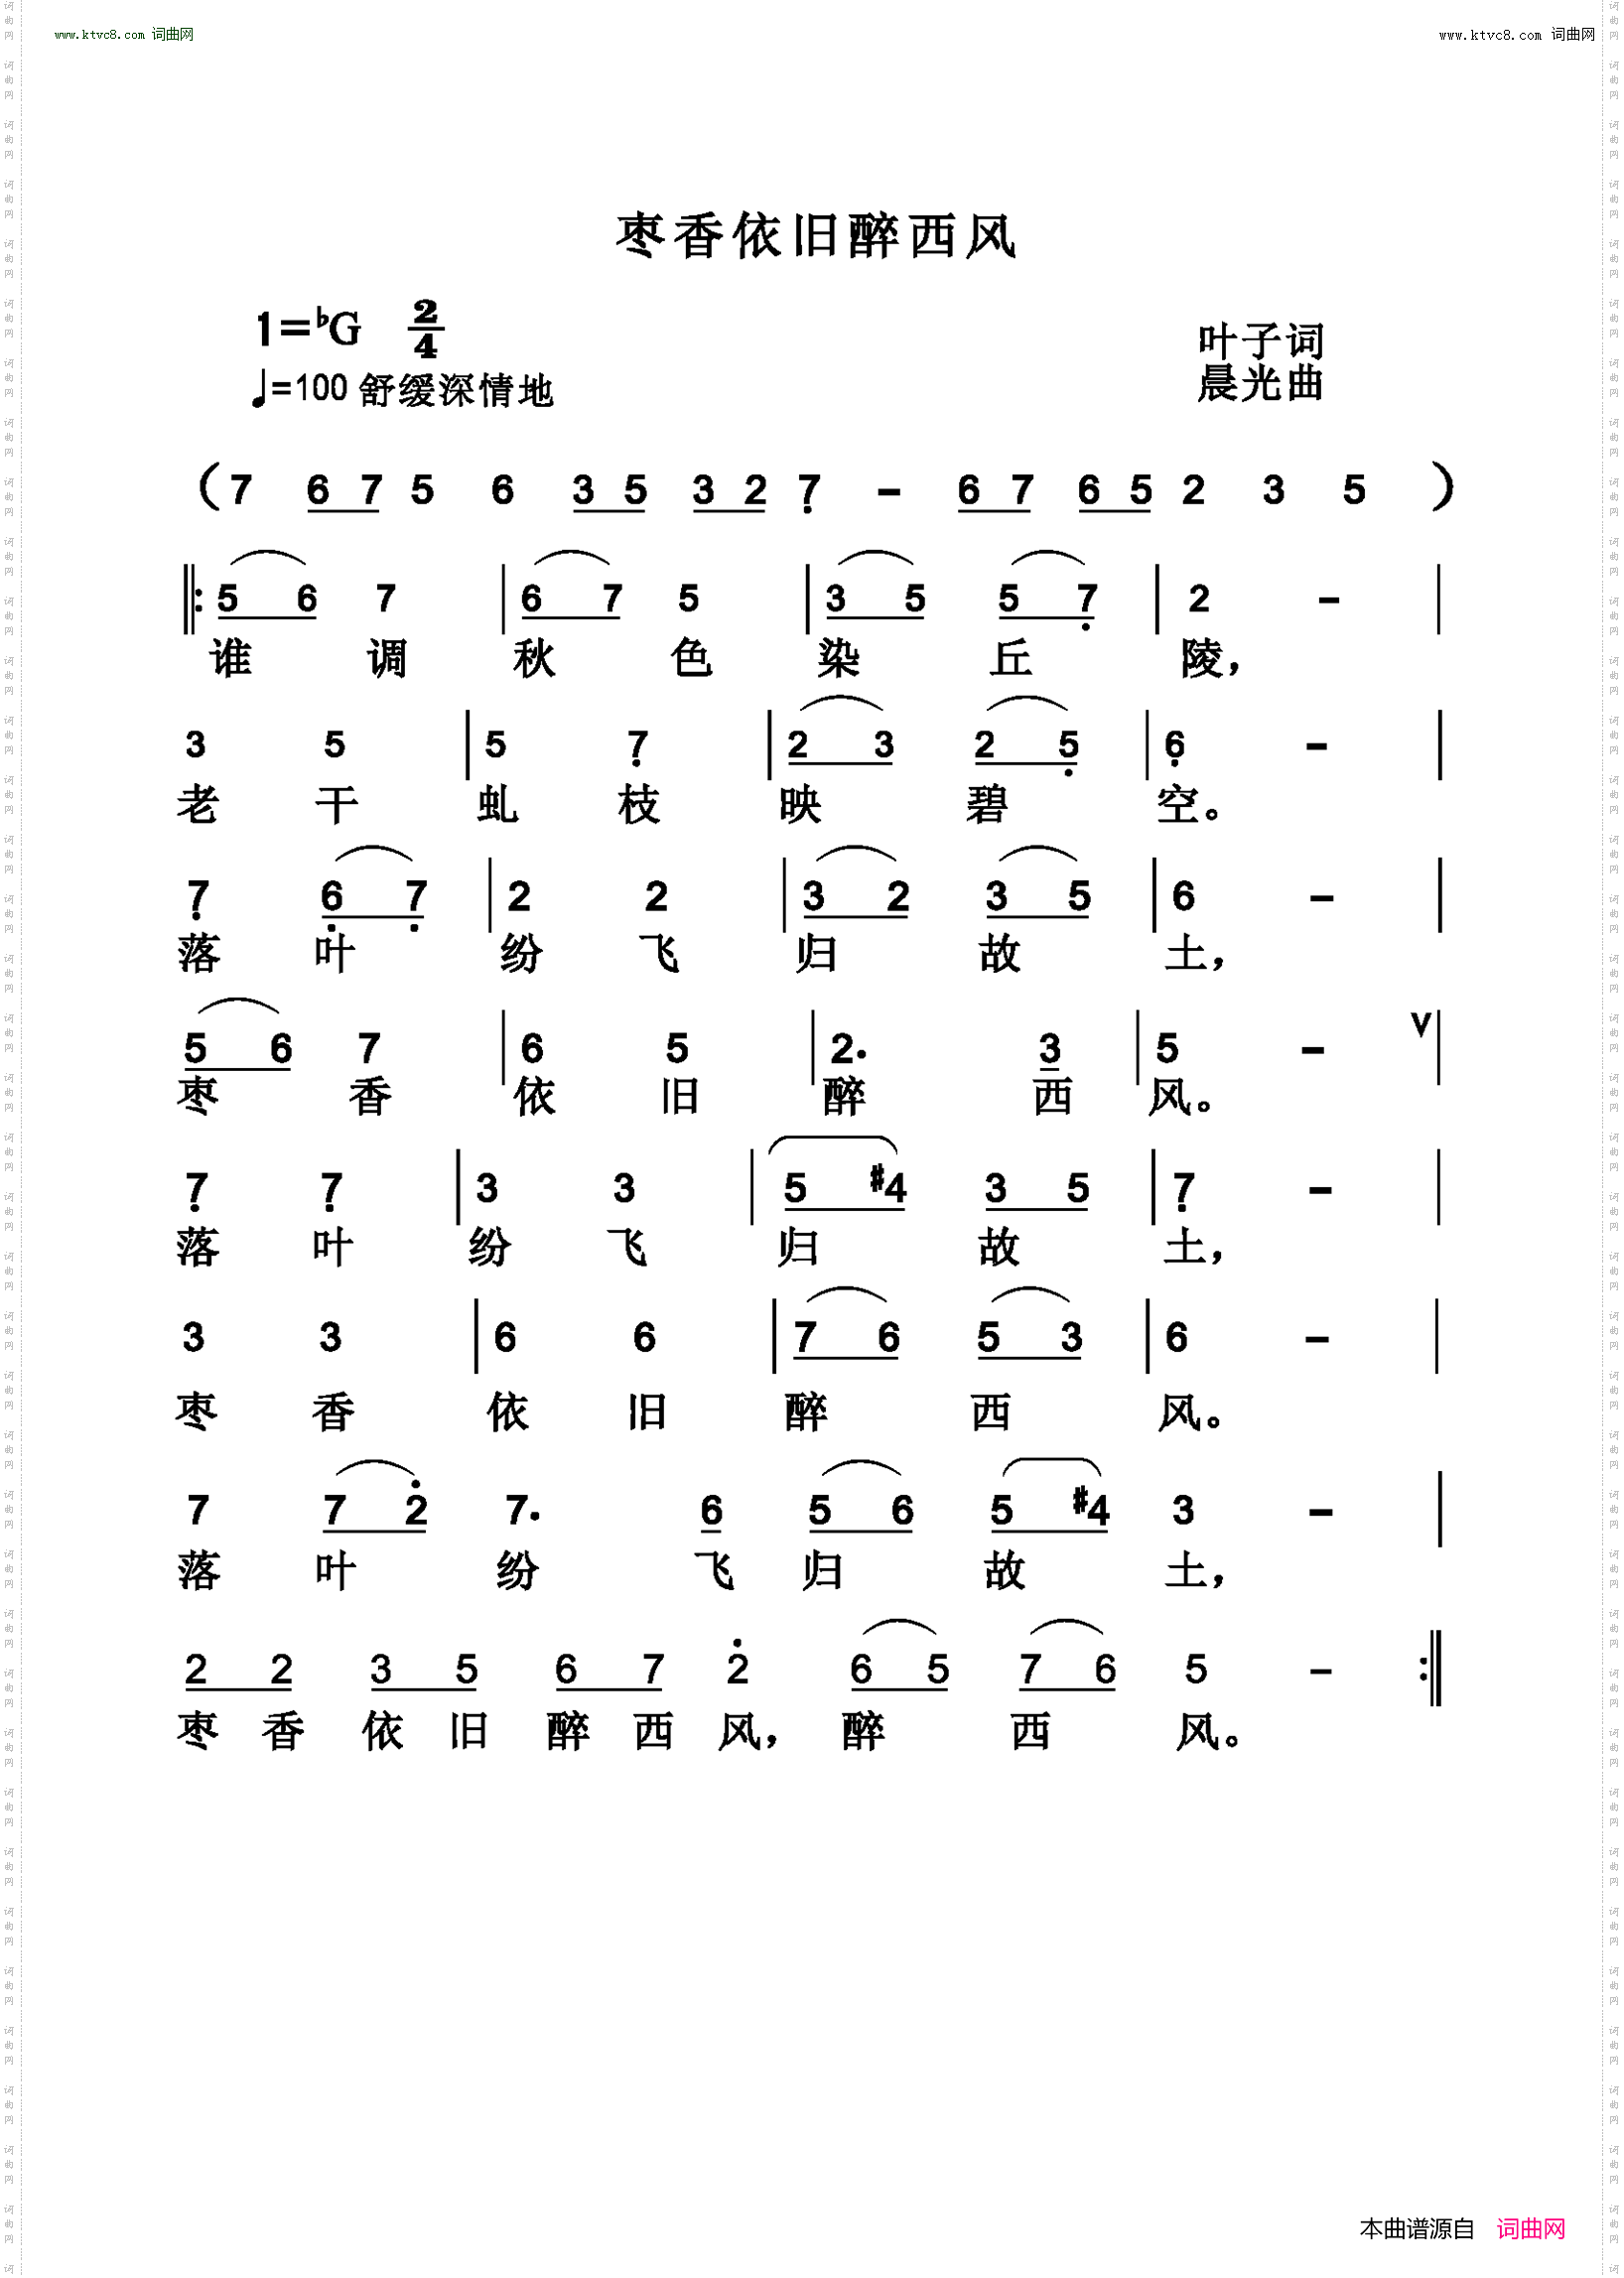 www.ktvc8.com 词曲网
www.ktvc8.com 词曲网
枣香依旧醉西风
1=♭G 2/4
♩=100 舒缓深情地
叶子词
晨光曲
( 7 6 7 5 6 3 5 3 2 7̣ - 6 7 6 5 2 3 5 )
‖: 5 6 7 | 6 7 5 | 3 5 5 7̣ | 2 - |
谁 调 秋 色 染 丘 陵，
3 5 | 5 7̣ | 2 3 2 5̣ | 6̣ - |
老 干 虬 枝 映 碧 空。
7̣ 6̣ 7̣ | 2 2 | 3 2 3 5 | 6 - |
落 叶 纷 飞 归 故 土，
5 6 7 | 6 5 | 2. 3 | 5 - V |
枣 香 依 旧 醉 西 风。
7̣ 7̣ | 3 3 | 5 #4 3 5 | 7̣ - |
落 叶 纷 飞 归 故 土，
3 3 | 6 6 | 7 6 5 3 | 6 - |
枣 香 依 旧 醉 西 风。
7 7 2̇ 7. 6 5 6 5 #4 3 - |
落 叶 纷 飞 归 故 土，
2 2 3 5 6 7 2̇ 6 5 7 6 5 - :‖
枣 香 依 旧 醉 西 风， 醉 西 风。
本曲谱源自 词曲网